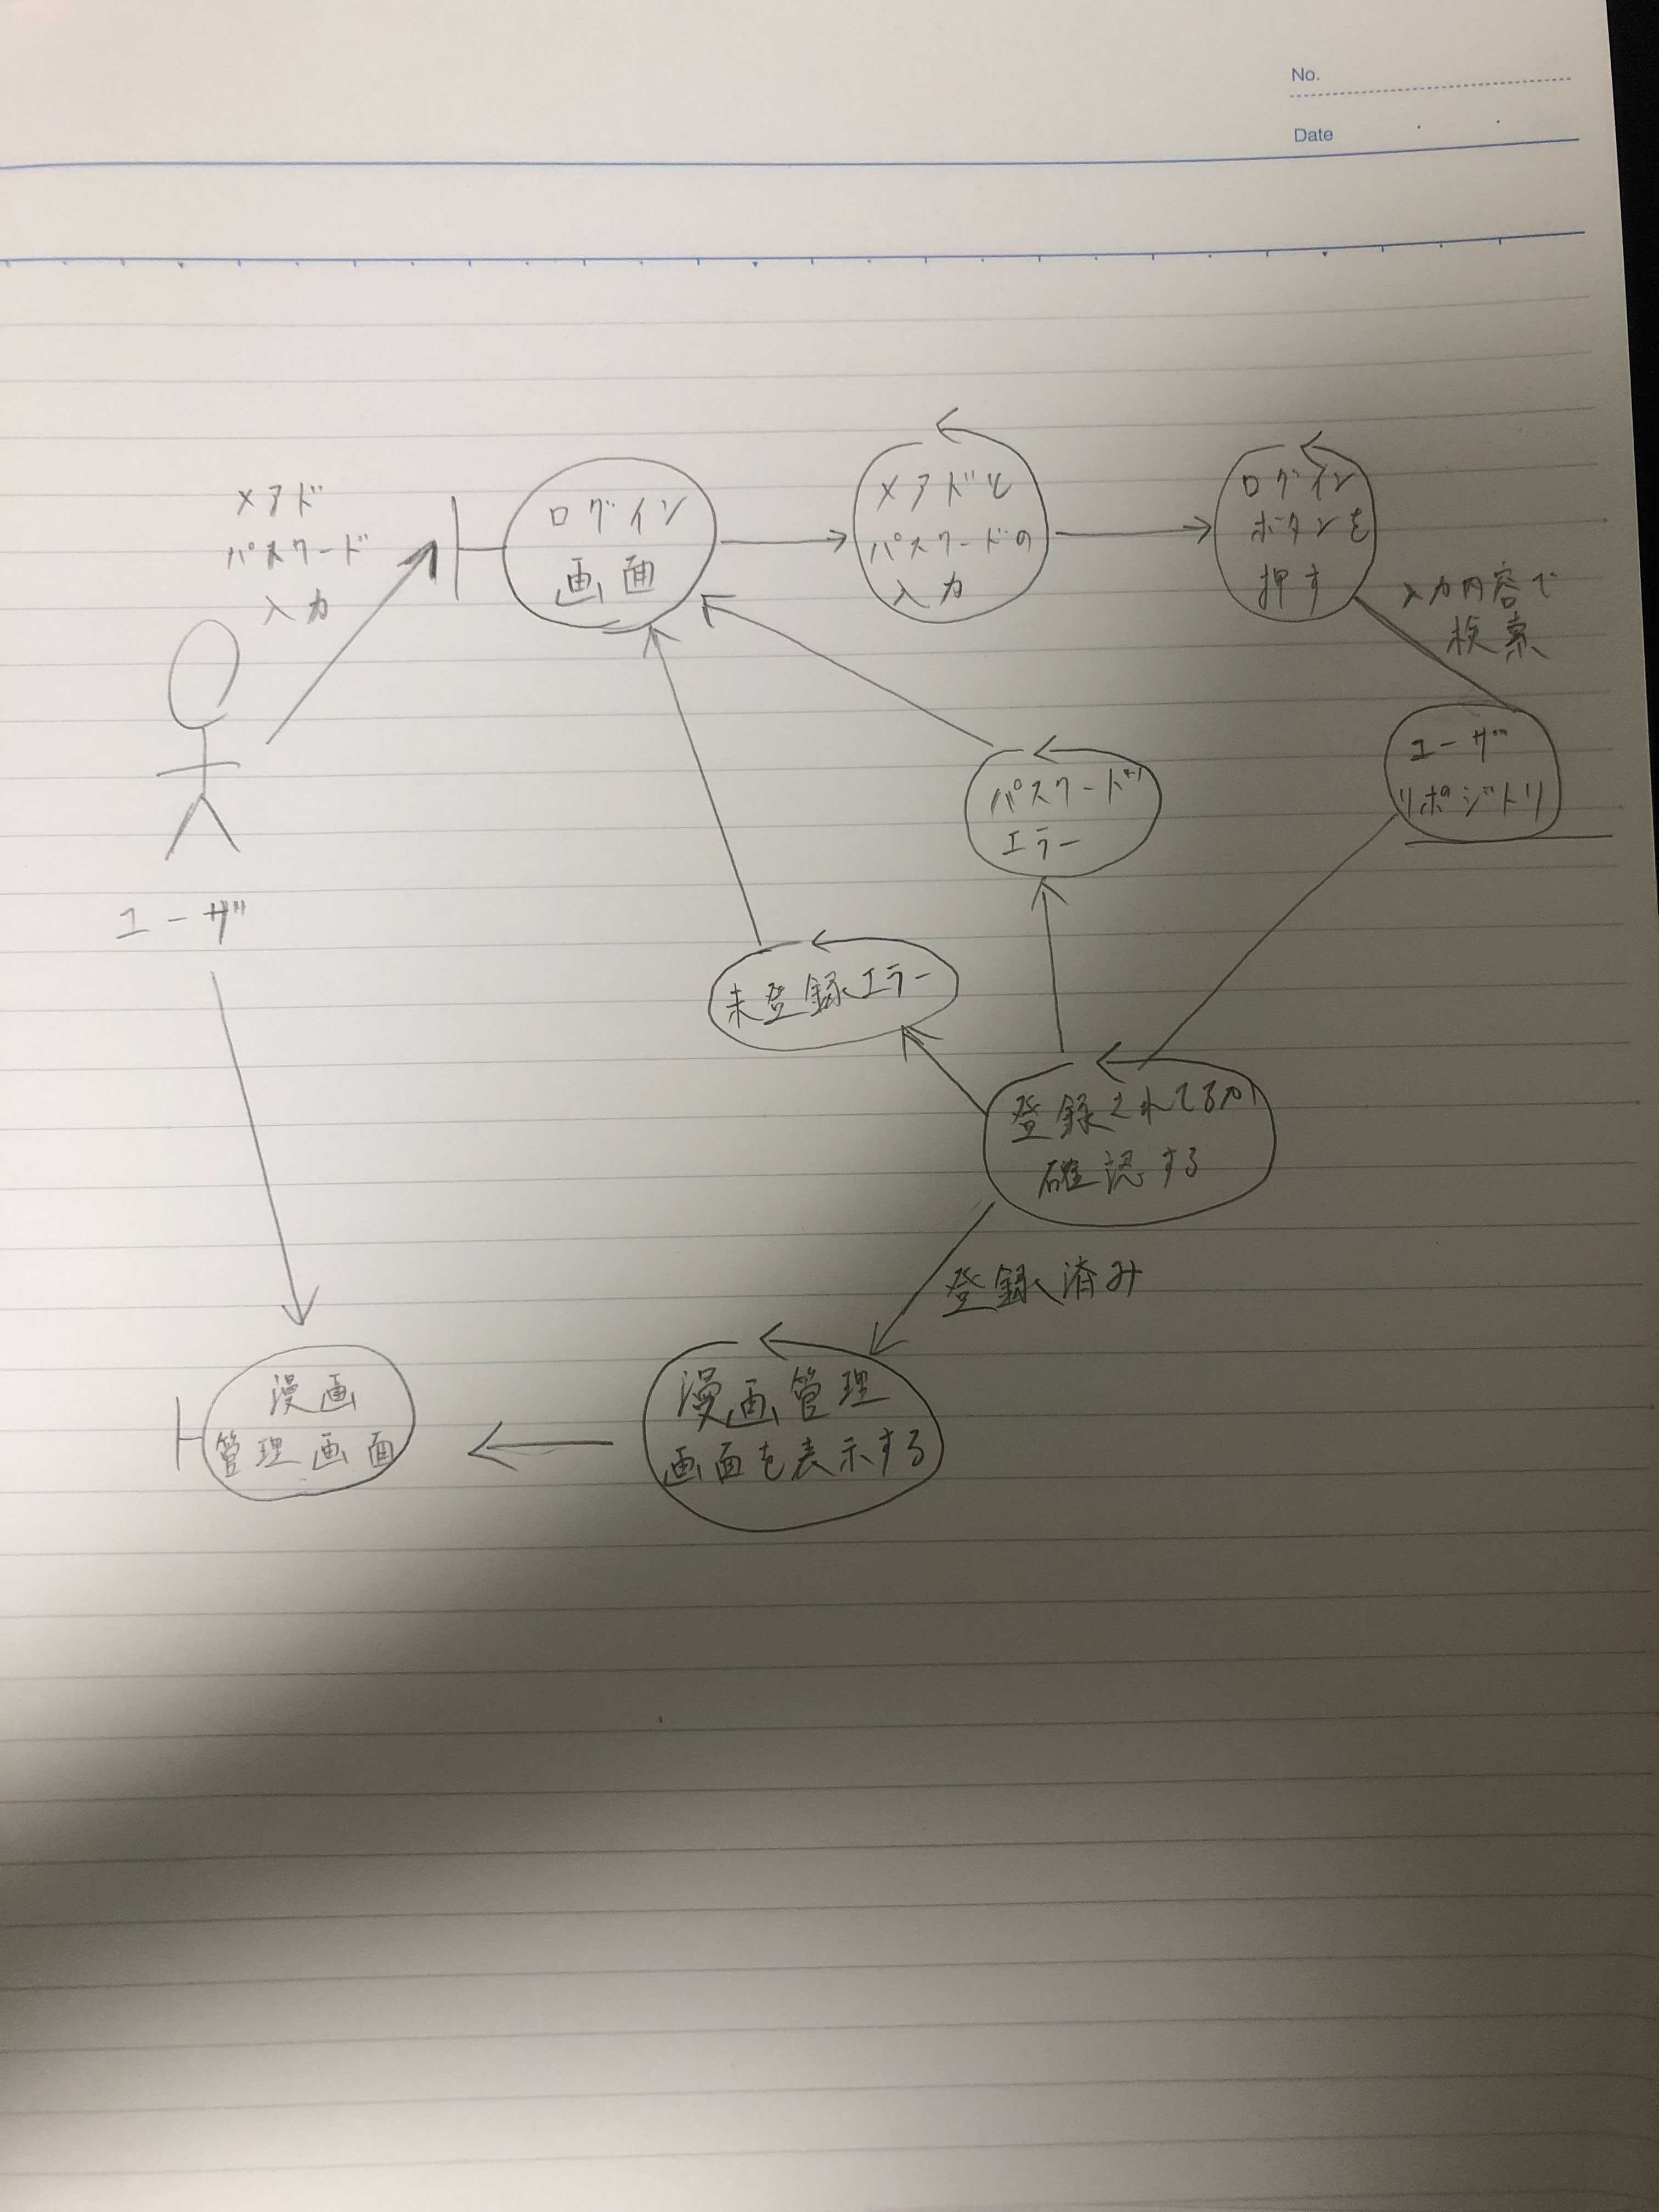 No.
Date
メアド
パスワード
入力
ログイン
画面
メアドと
パスワードの
入力
ログイン
ボタンを
押す
入力内容で
検索
ユーザ
リポジトリ
パスワード
エラー
ユーザ
未登録エラー
登録されてるか
確認する
登録済み
漫画
管理画面
漫画管理
画面を表示する